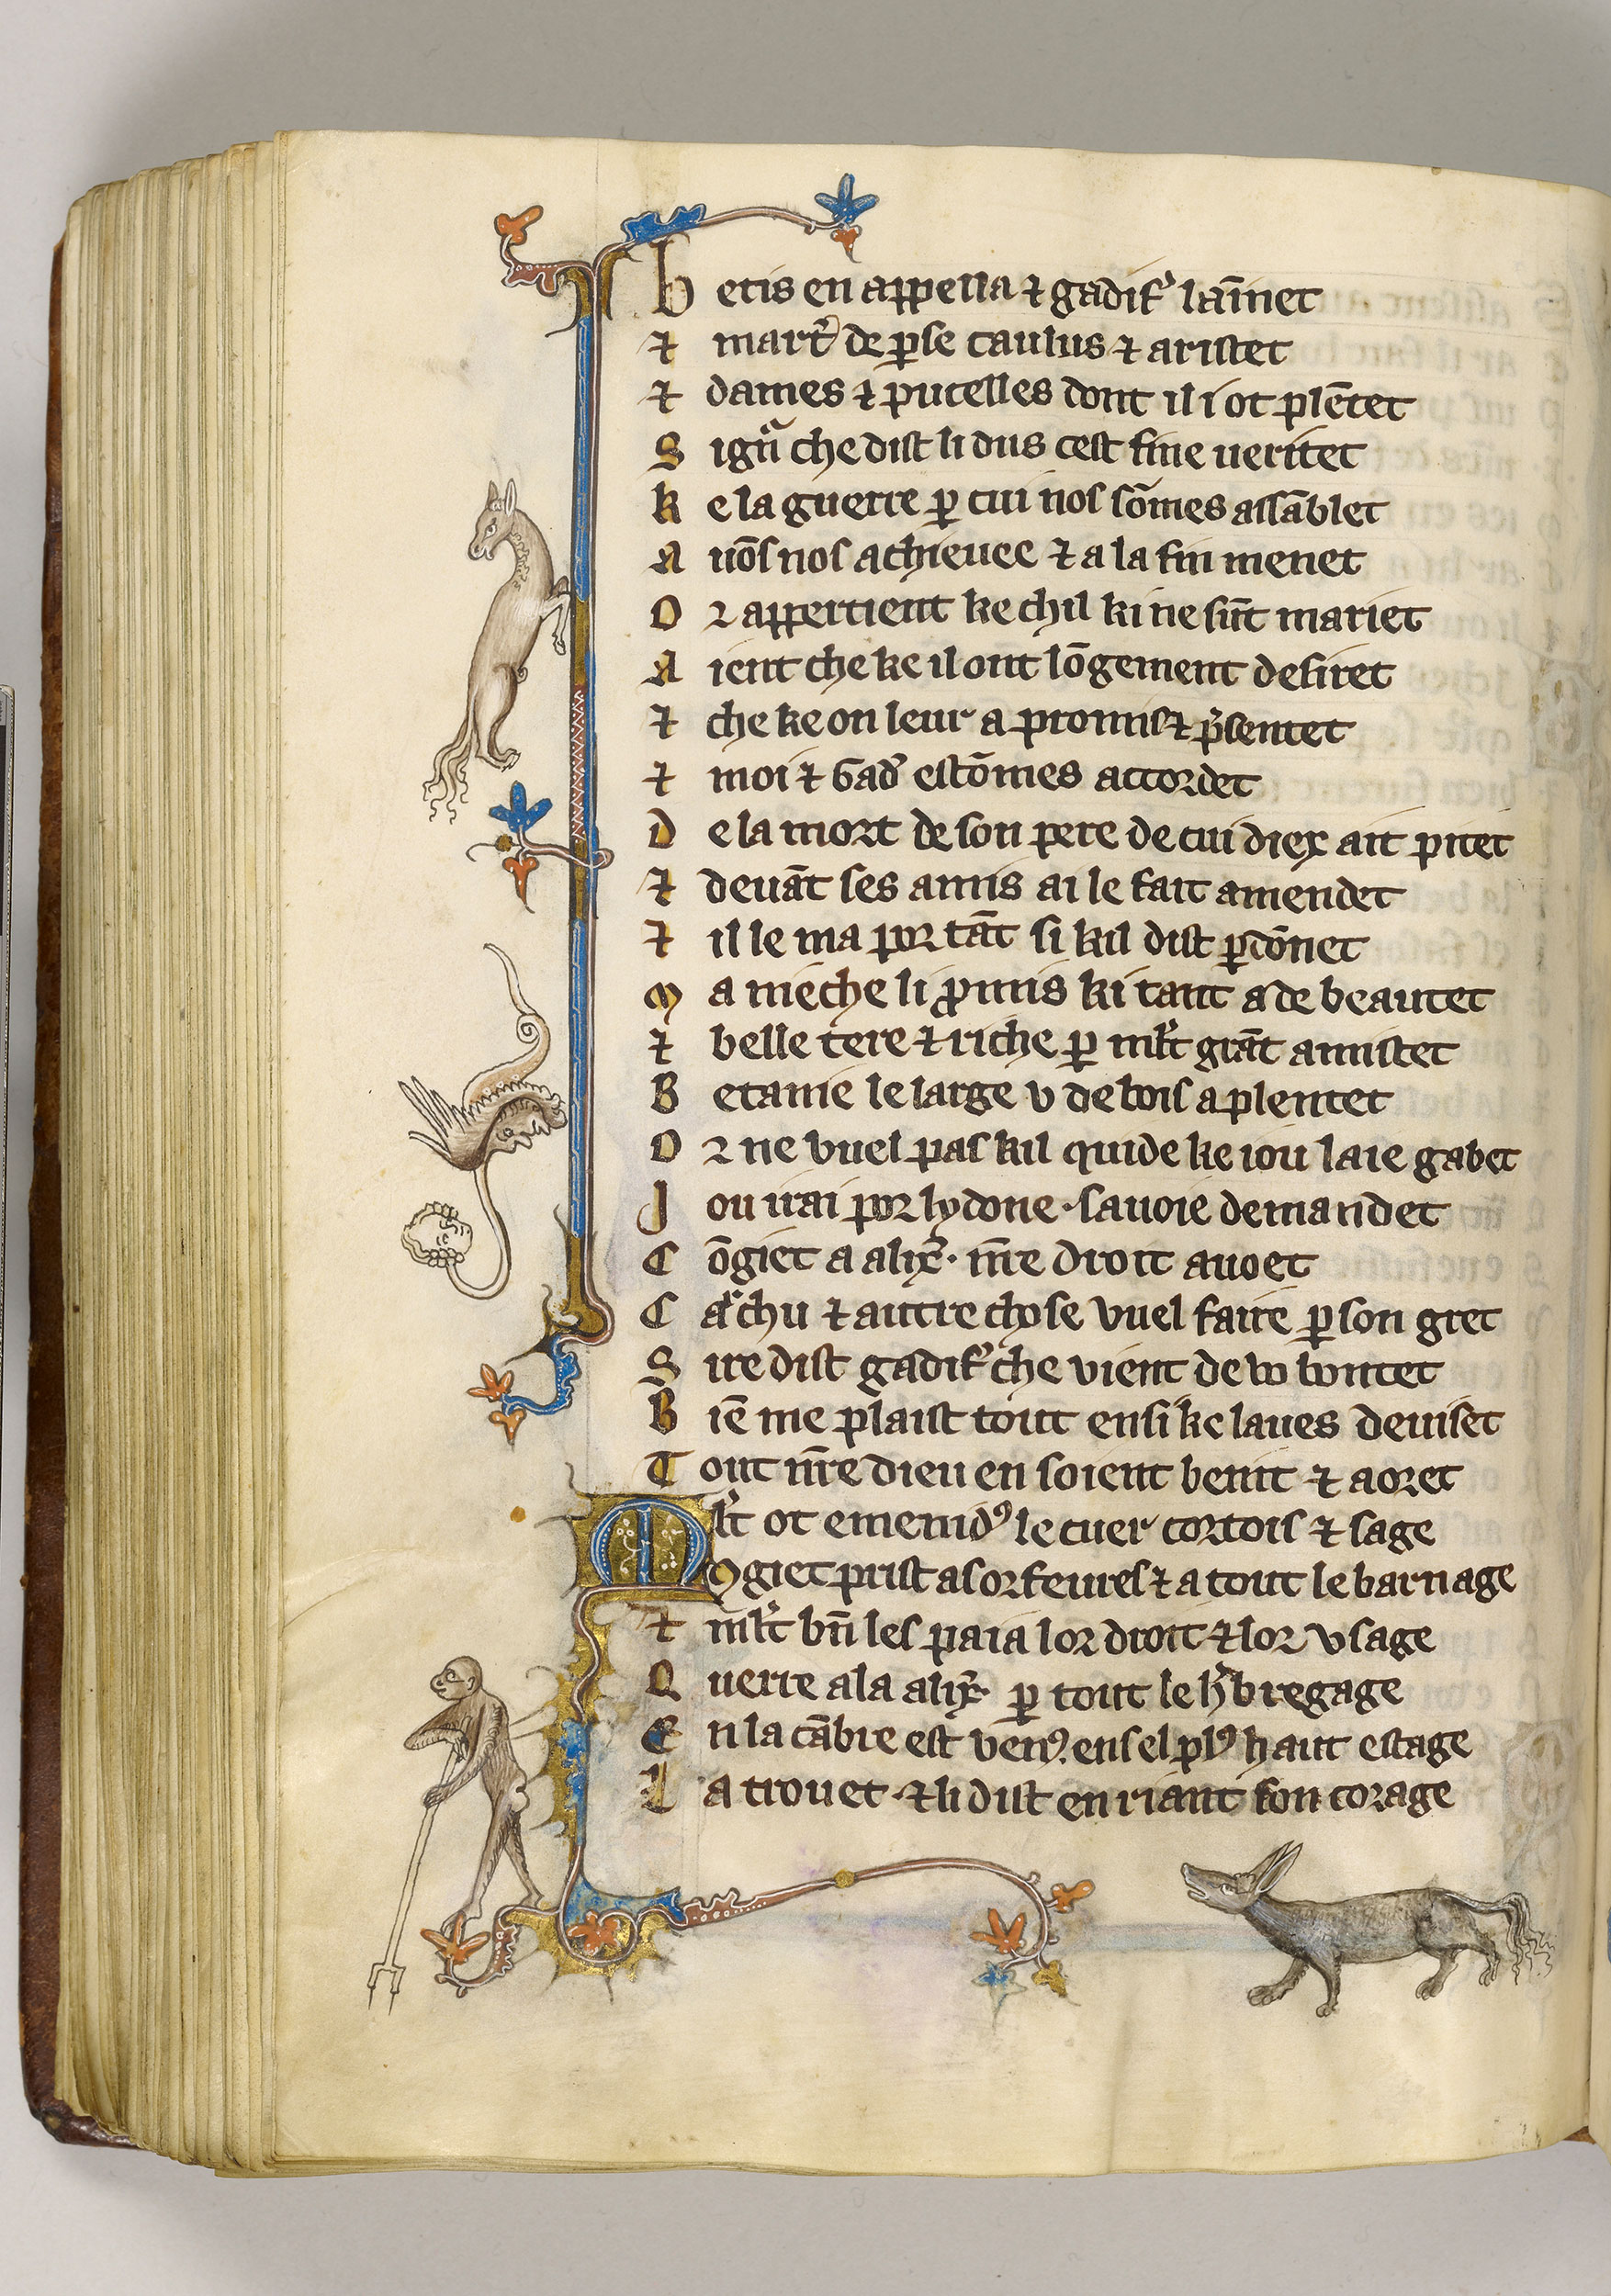 b etis en appella ⁊ gadif᷒ lai̅net
⁊ mart᷒ de ꝑse caulus ⁊ aristet
⁊ dames ⁊ pucelles dont il i ot ple̅tet
S ign᷒ che dist li dus cest fine ueritet
k e la guerre ꝑ cui nos so̅mes assa̅blet
A uo̅s nos achieuee ⁊ a la fin menet
O r appertient ke chil ki ne su̅t mariet
A ient che ke il ont lo̅gement desiret
⁊ che ke on leur a promis ⁊ p̅sentet
⁊ moi ⁊ Gad᷒ esto̅mes accordet
D e la mort de son pere de cui diex ait pitet
⁊ deua̅t ses amis ai le fait amendet
⁊ il le ma por ta̅t si kil dist ꝑdo̅net
M a nieche li ꝓmis ki tant a de beautet
⁊ belle tere ⁊ riche ꝑ ml̅t gra̅t amistet
B etanie le large v de bois a plentet
O r ne vuel pas kil quide ke iou laie gabet
J ou irai por lydone · sauoie demandet
C o̅giet a alix̅ · n̅re droit auoet
C ar chu ⁊ autre chose vuel faire ꝑ son gret
S ire dist gadif᷒ che vient de vo bontet
B ie̅ me plaist tout ensi ke laues deuiset
T out n̅re dieu en soient benit ⁊ aoret
M l̅t ot emenidꝰ le cuer cortois ⁊ sage
ꝯgiet prist as orfeures ⁊ a tout le barnage
⁊ ml̅t bn̅ les paia lor droit ⁊ lor vsage
Q uerre ala alix̅ ꝑ tout le h̅bregage
E n la ca̅bre est venꝰ. ens el plꝰ haut estage
L a trouet · ⁊ li dist en riant son corage